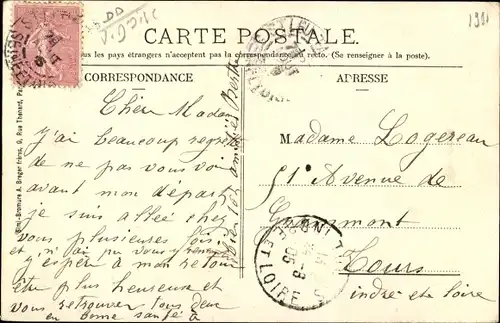 1911
CARTE POSTALE
Tous les pays étrangers n'acceptent pas la correspondance au recto. (Se renseigner à la poste).
CORRESPONDANCE
ADRESSE
Chère Madame
j'ai beaucoup regretté
de ne pas vous voir
avant mon départ
je suis allée chez
vous plusieures fois
et n'ai pu vous
j'espère a mon retour
être plus heureuse et
vous retrouver tous deux
en bonne santé à
amitiés Berthe
Madame Logereau
51 Avenue de
Grammont
Tours
indre et loire
ET LOIRE
05
A. Breger frères, 9, Rue Thénard, Paris